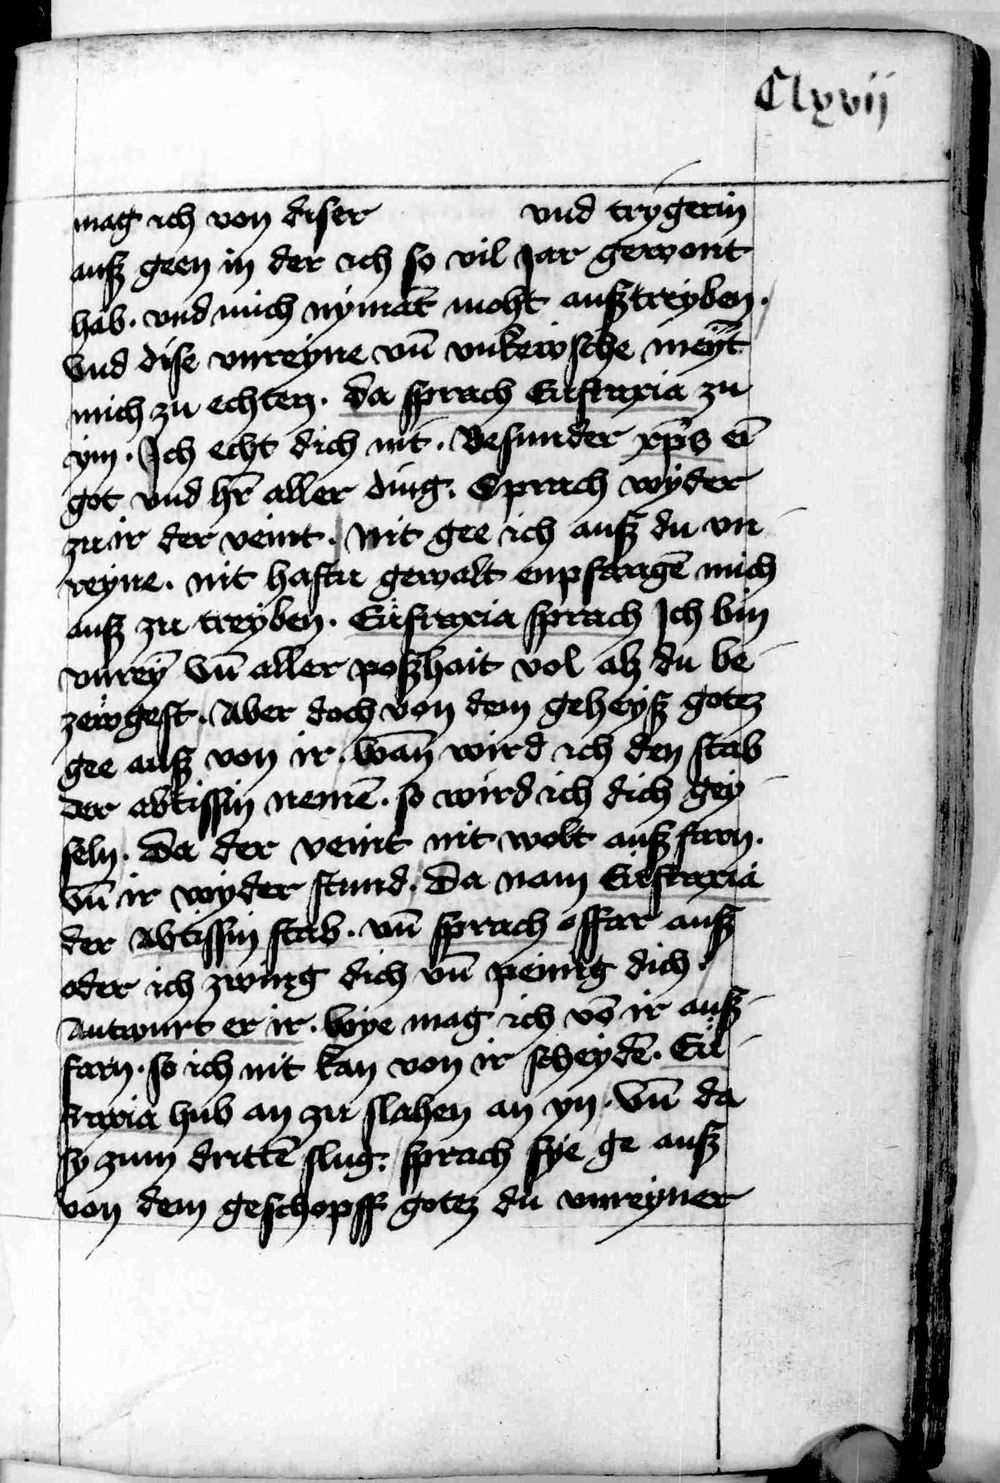 Clxvij
mag ich von diser und trygerin
auß geen in der ich so vil Jar gewont
hab. vnd mich nymāt moht außtreyben.
Vnd dise vnreyne vn̄ vnkewsche meÿt
mich zu echten. Da sprach Eufraxia zu
ym. Ich echt dich nit. Besunder xp̄s ei̅
got vnd hr̄ aller ding. Sprach wyder
zu ir der veint. Nit gee ich auß du vn
reyne. nit hastu gewalt enpfangē mich
auß zu treyben. Eufraxia sprach Ich bin
vnrey̅ Vn̄ aller poßhait vol alz du be
zewgest. Aber doch von dem geheyß gotez
gee auß von ir. Wan̄ wird ich den stab
der abtissin nemē. so wird ich dich gey
seln. Da der veint nit wolt auß farn.
Vn̄ ir wyder stund. Da nam Eufraxia
der Abtissin stab. vn̄ sprach offar auß
oder ich zwing dich vn̄ peinig dich.
Antwurt er ir. Wye mag ich vō ir auß
farn. so ich nit kan von ir scheydē. Eu
fraxia hub an zu slahen an yn. Vn̄ da
sy zum drittē slug. sprach sye ge auß
von dem geschopff gotez du vnreyner